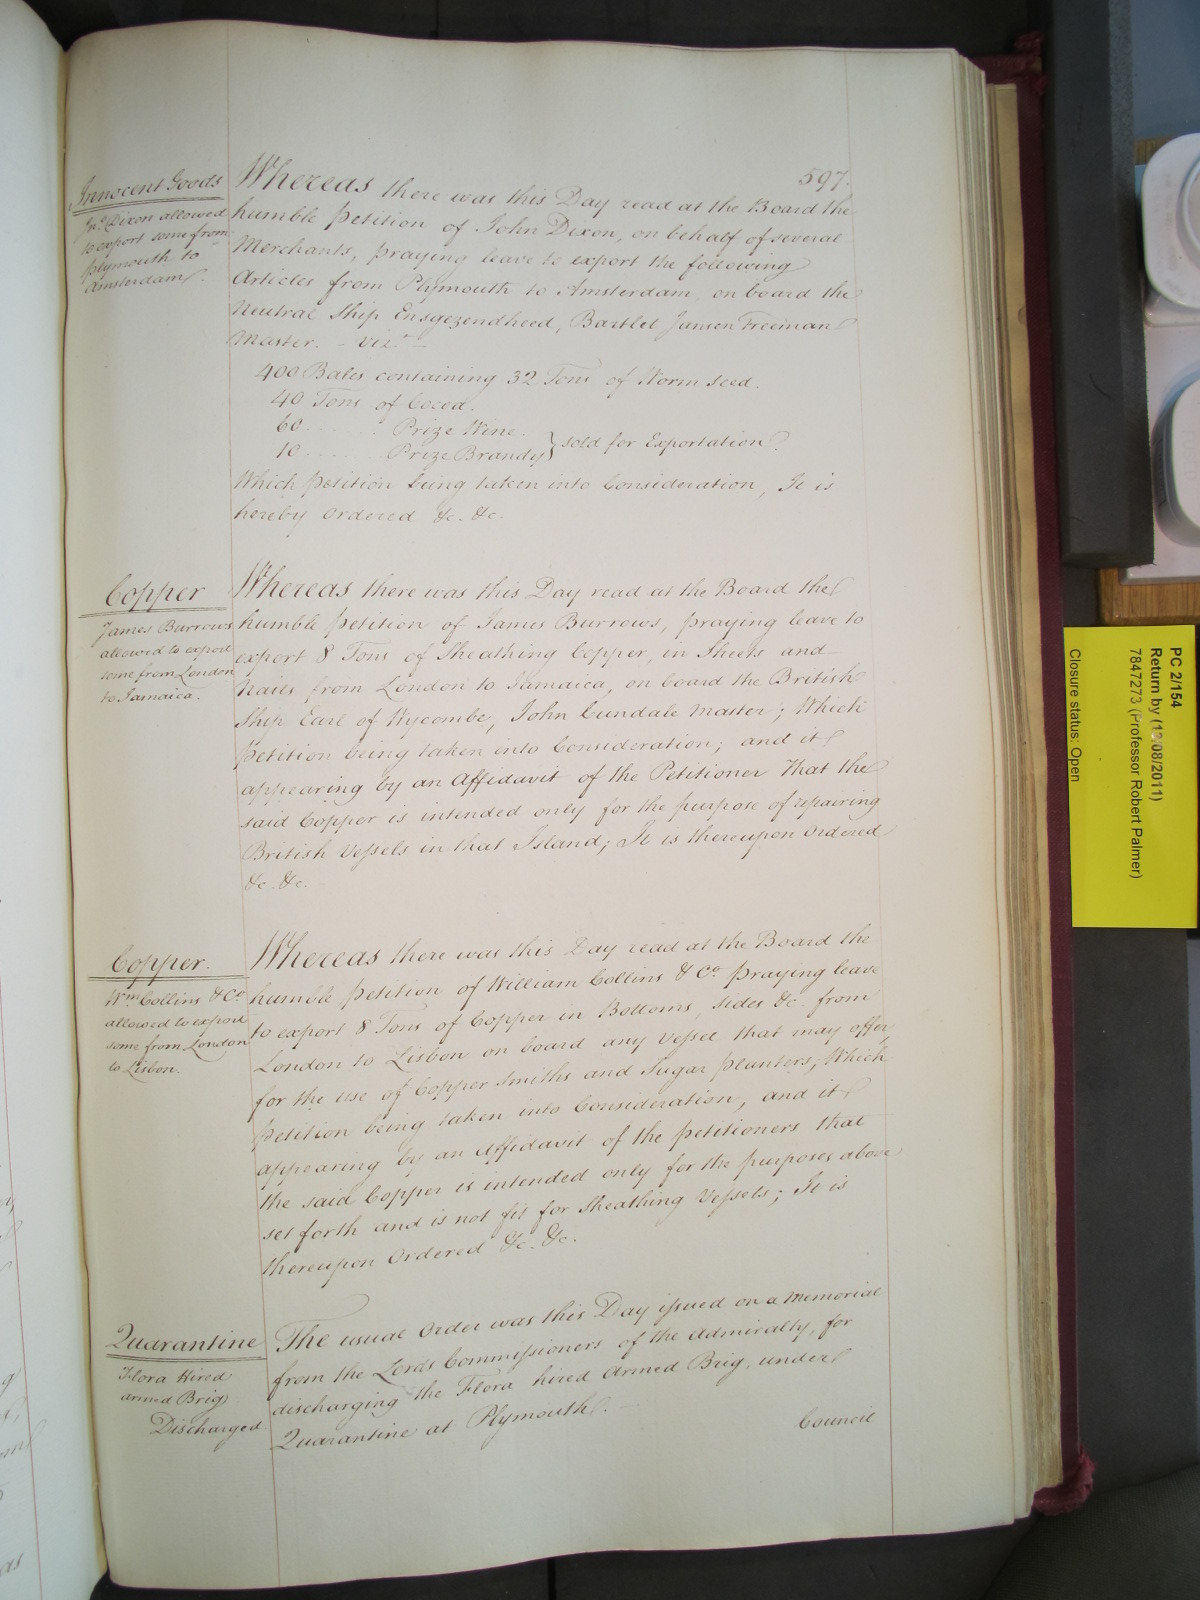 597.
Innocent Goods
Jno. Dixon allowed
to export some from
Plymouth to
Amsterdam.
Whereas there was this Day read at the Board the
humble Petition of John Dixon, on behalf of several
Merchants, praying leave to export the following
Articles from Plymouth to Amsterdam, on board the
Neutral Ship Ensgezendheed, Bartlet Jansen Freeman
Master. - vizt. -
400 Bales containing 32 Tons of Worm Seed.
40 Tons of Cocoa.
60 ...... Prize Wine.
10 ...... Prize Brandy } sold for Exportation
Which Petition being taken into Consideration, It is
hereby Ordered &c. &c.
Copper
James Burrows
allowed to export
some from London
to Jamaica.
Whereas there was this Day read at the Board the
humble Petition of James Burrows, praying leave to
export 8 Tons of Sheathing Copper, in Sheets and
Nails, from London to Jamaica, on board the British
Ship Earl of Wycombe, John Cundale Master; Which
Petition being taken into Consideration; and it
appearing by an Affidavit of the Petitioner That the
said Copper is intended only for the purpose of repairing
British Vessels in that Island; It is thereupon Ordered
&c. &c.
Copper.
Wm. Collins & Co.
allowed to export
some from London
to Lisbon.
Whereas there was this Day read at the Board the
humble Petition of William Collins & Co. praying leave
to export 8 Tons of Copper in Bottoms, sides &c. from
London to Lisbon on board any Vessel that may offer,
for the use of Copper Smiths and Sugar Planters; Which
Petition being taken into Consideration, and it
appearing by an Affidavit of the Petitioners that
the said Copper is intended only for the purposes above
set forth and is not fit for Sheathing Vessels; It is
thereupon Ordered &c. &c.
Quarantine
Flora Hired
armed Brig
Discharged
The usual Order was this Day issued on a Memorial
from the Lords Commissioners of the Admiralty, for
discharging the Flora hired Armed Brig, under
Quarantine at Plymouth. -
Council
PC 2/154
Return by (12/08/2011)
7847273 (Professor Robert Palmer)
Closure status: Open